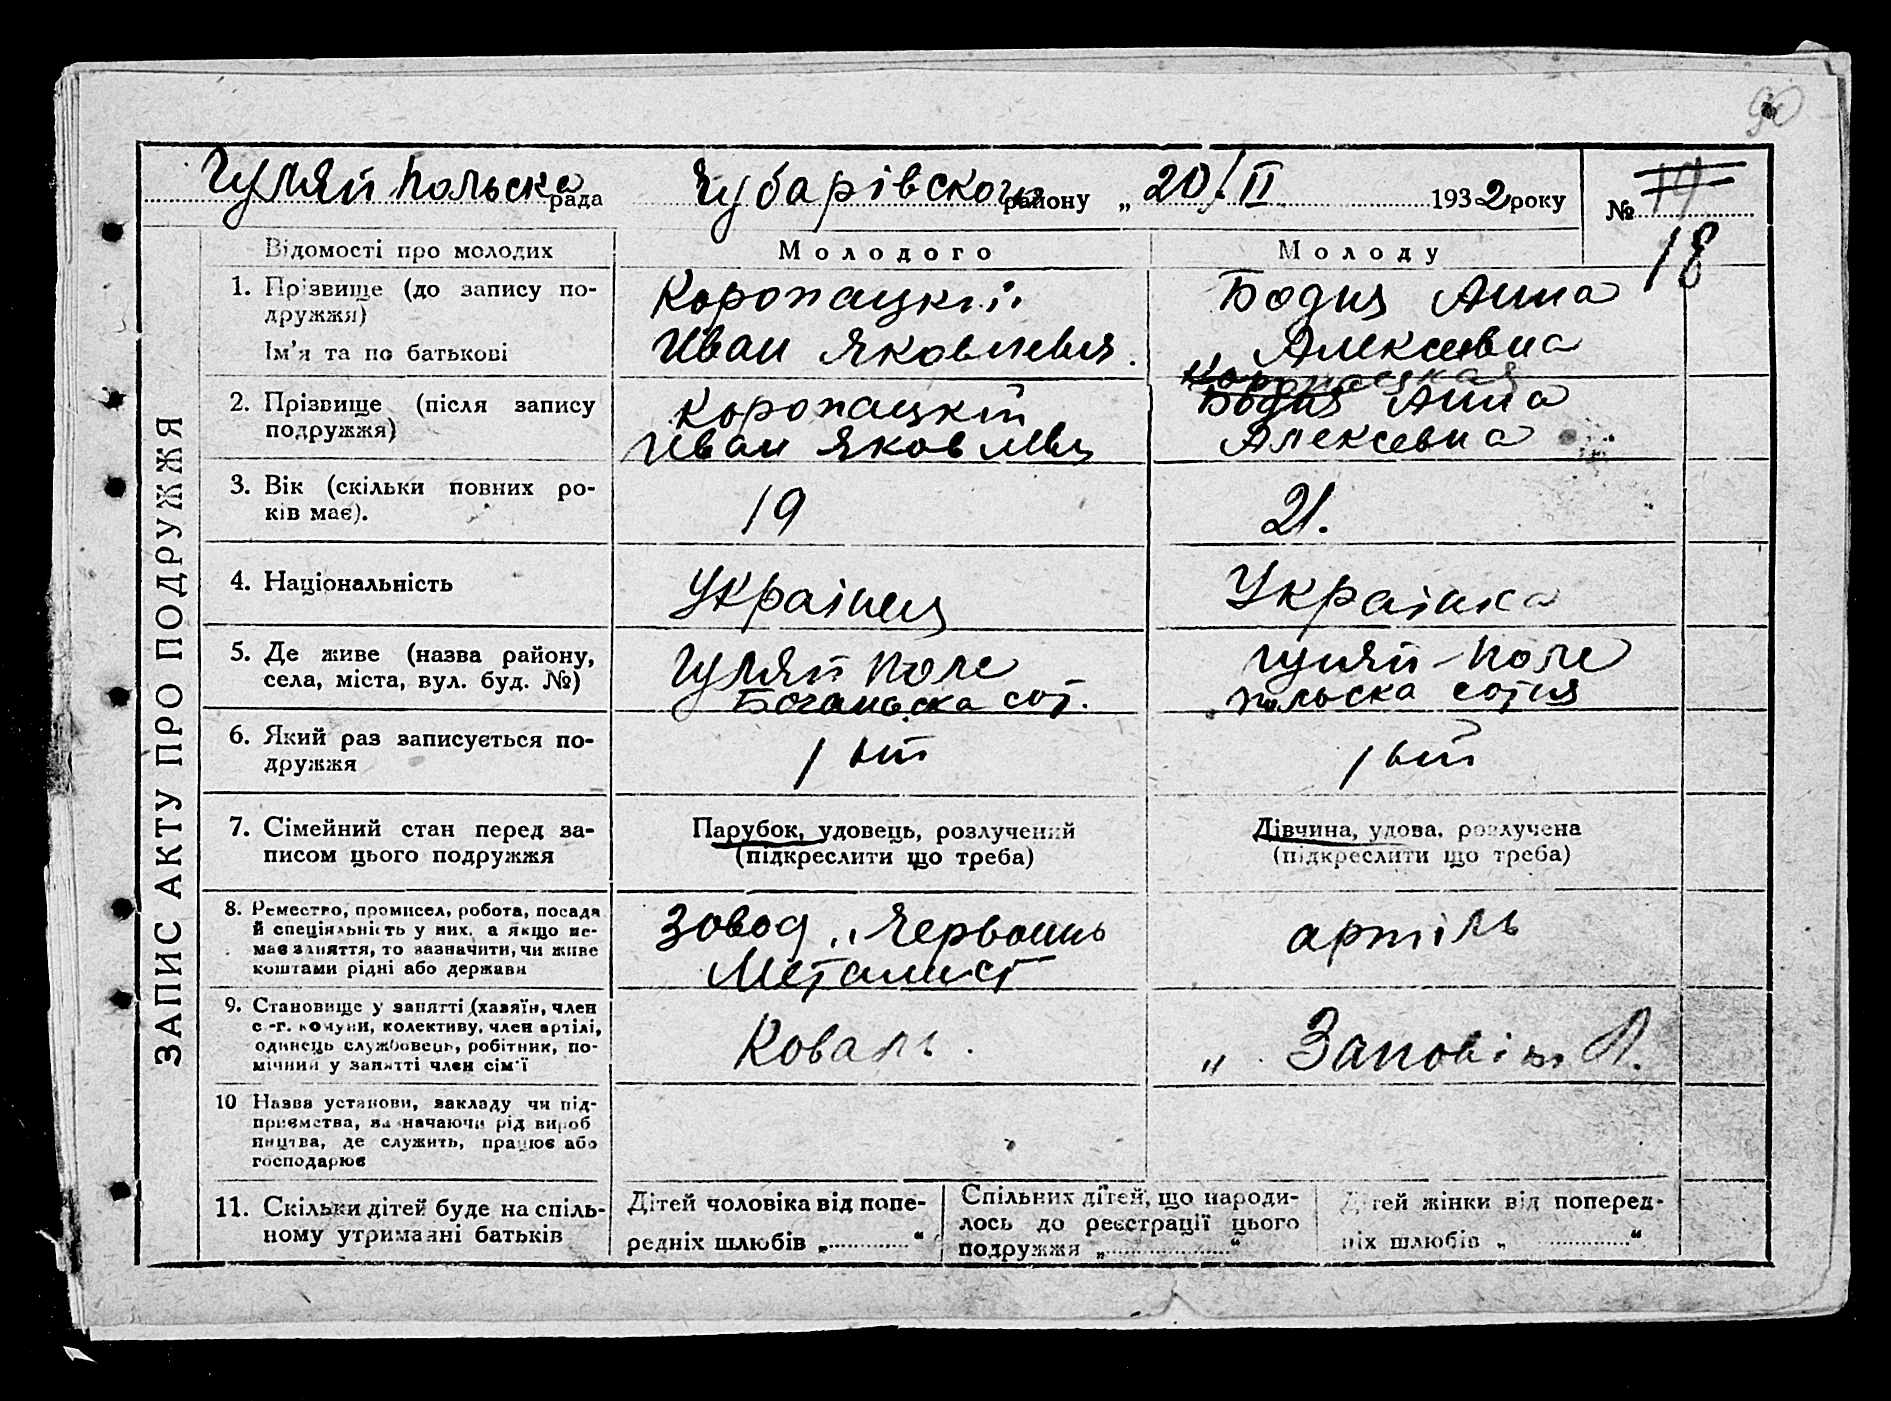 90
Гуляй польска рада Чубарівского району „20/II 1932 року №
18
ЗАПИС АКТУ ПРО ПОДРУЖЖЯ
Відомості про молодих
Молодого
Молоду
1. Прізвище (до запису по-
дружжя)
Ім'я та по батькові
Коропацкий
Иван Яковлевич.
Бодня Анна
Алексеевна
2. Прізвище (після запису
подружжя)
Коропацкий
Иван Яковлевич
Коропацкая
Бодня Анна
Алексевна
3. Вік (скільки повних ро-
ків має).
19
21.
4. Національність
Українец
Українка
5. Де живе (назва району,
села, міста, вул. буд. №)
Гуляй Поле
сот.
Гуляй-Поле
польска сотня
6. Який раз записується по-
дружжя
1 ый
1 ый
7. Сімейний стан перед за-
писом цього подружжя
Парубок, удовець, розлучений
(підкреслити що треба)
Дівчина, удова, розлучена
(підкреслити що треба)
8. Ремество, промисел, робота, посада
й спеціяльність у них, а якщо не-
має заняття, то зазначити, чи живе
коштами рідні або держави
Зовод „Червонно
Металист
артіль
9. Становище у занятті (хазяїн, член
с.-г. комуни, колективу, член артілі,
одинець службовець, робітник, по-
мічний у занятті член сім'ї
Коваль.
„ Заповіт Л.
10 Назва установи, закладу чи під-
приємства, зазначаючи рід вироб
ництва, де служить, працює або
господарює
11. Скільки дітей буде на спіль-
ному утриманні батьків
Дітей чоловіка від попе-
редніх шлюбів „ “
Спільних дітей, що народи-
лось до реєстрації цього
подружжя „ “
Дітей жінки від поперед-
ніх шлюбів „ “